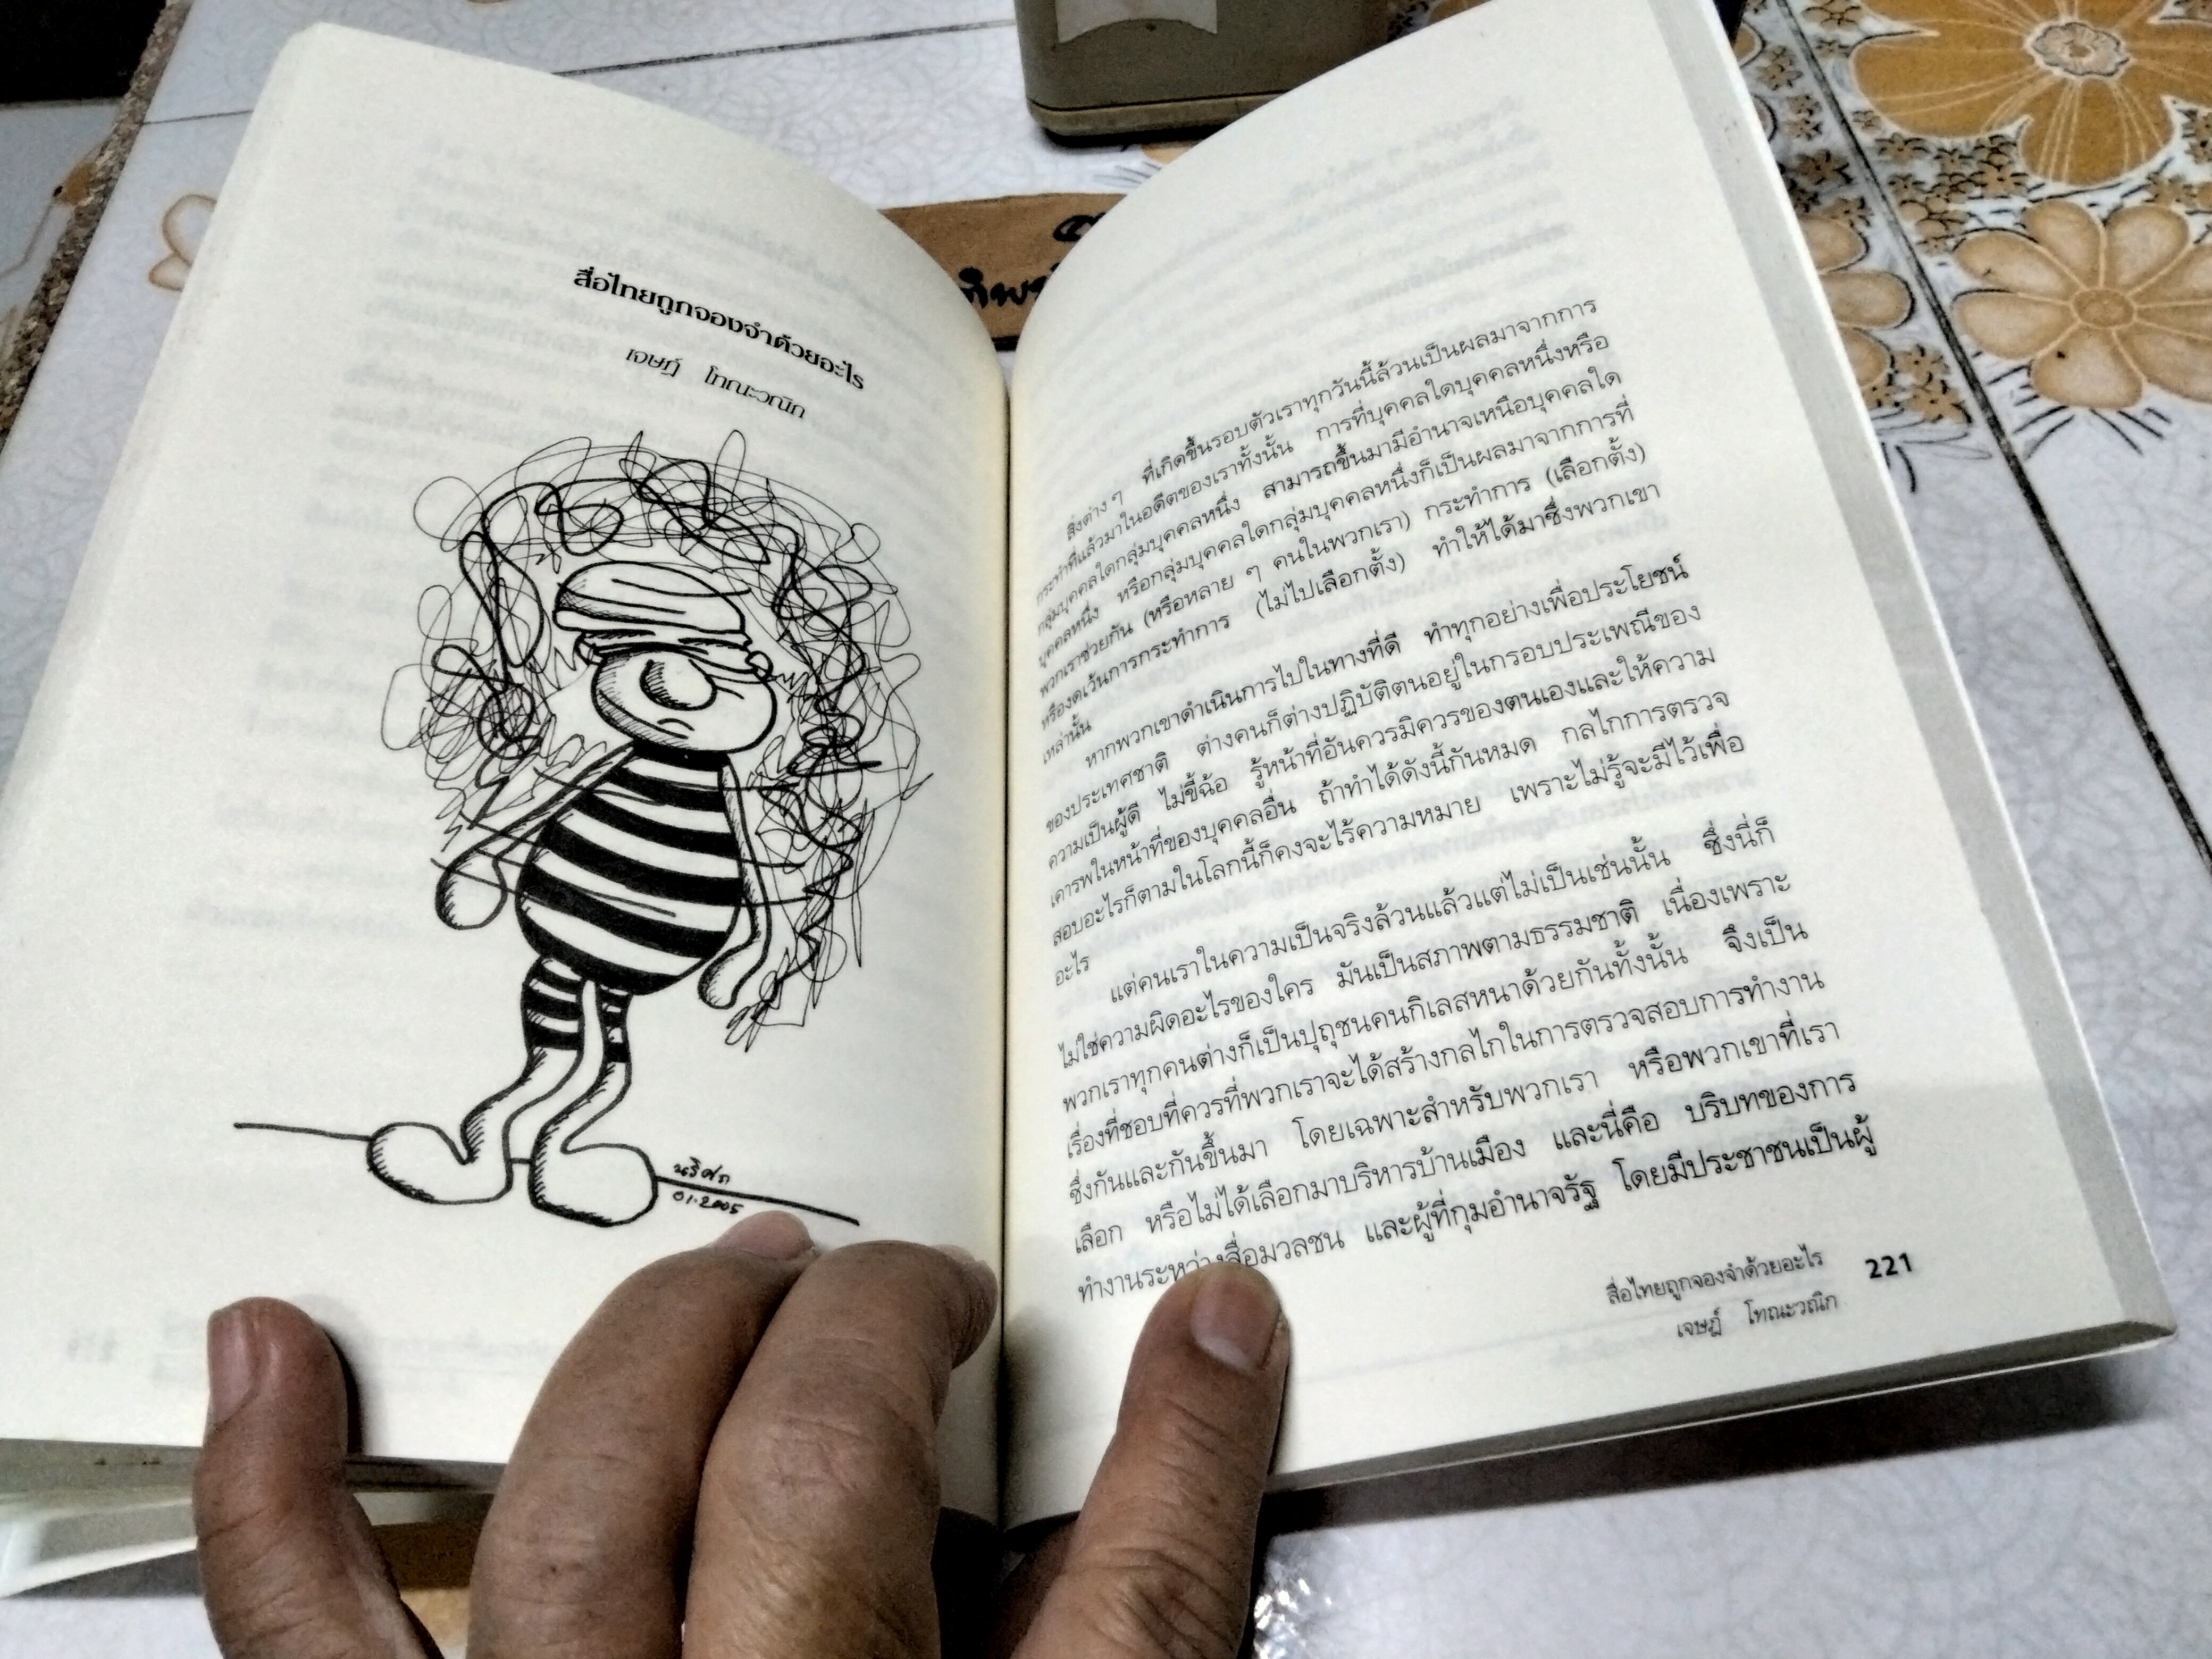 สื่อไทยถูกจองจำด้วยอะไร
เจษฎ์ โทณะวณิก
นริศภ
01.2005
สิ่งต่าง ๆ ที่เกิดขึ้นรอบตัวเราทุกวันนี้ล้วนเป็นผลมาจากการ
กระทำที่แล้วมาในอดีตของเราทั้งนั้น การที่บุคคลใดบุคคลหนึ่งหรือ
กลุ่มบุคคลใดกลุ่มบุคคลหนึ่ง สามารถขึ้นมามีอำนาจเหนือบุคคลใด
บุคคลหนึ่ง หรือกลุ่มบุคคลใดกลุ่มบุคคลหนึ่งก็เป็นผลมาจากการที่
พวกเราช่วยกัน (หรือหลาย ๆ คนในพวกเรา) กระทำการ (เลือกตั้ง)
หรืองดเว้นการกระทำการ (ไม่ไปเลือกตั้ง) ทำให้ได้มาซึ่งพวกเขา
เหล่านั้น
หากพวกเขาดำเนินการไปในทางที่ดี ทำทุกอย่างเพื่อประโยชน์
ของประเทศชาติ ต่างคนก็ต่างปฏิบัติตนอยู่ในกรอบประเพณีของ
ความเป็นผู้ดี ไม่ขี้ฉ้อ รู้หน้าที่อันควรมิควรของตนเองและให้ความ
เคารพในหน้าที่ของบุคคลอื่น ถ้าทำได้ดังนี้กันหมด กลไกการตรวจ
สอบอะไรก็ตามในโลกนี้ก็คงจะไร้ความหมาย เพราะไม่รู้จะมีไว้เพื่อ
อะไร
แต่คนเราในความเป็นจริงล้วนแล้วแต่ไม่เป็นเช่นนั้น ซึ่งนี่ก็
ไม่ใช่ความผิดอะไรของใคร มันเป็นสภาพตามธรรมชาติ เนื่องเพราะ
พวกเราทุกคนต่างก็เป็นปุถุชนคนกิเลสหนาด้วยกันทั้งนั้น จึงเป็น
เรื่องที่ชอบที่ควรที่พวกเราจะได้สร้างกลไกในการตรวจสอบการทำงาน
ซึ่งกันและกันขึ้นมา โดยเฉพาะสำหรับพวกเรา หรือพวกเขาที่เรา
เลือก หรือไม่ได้เลือกมาบริหารบ้านเมือง และนี่คือ บริบทของการ
ทำงานระหว่างสื่อมวลชน และผู้ที่กุมอำนาจรัฐ โดยมีประชาชนเป็นผู้
สื่อไทยถูกจองจำด้วยอะไร 221
เจษฎ์ โทณะวณิก